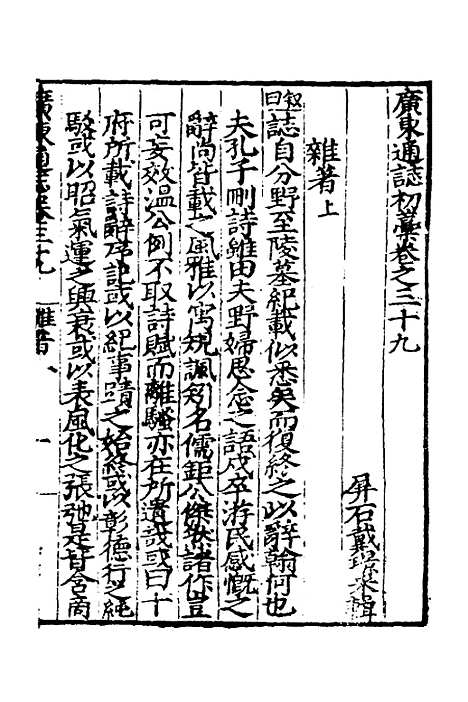 廣東通誌初藁卷之三十九
屏石戴璟采輯
雜著上
叙曰誌自分野至陵墓紀載似悉矣而復終之以辭翰何也
夫孔子刪詩雖田夫野婦思念之語戍卒游民感慨之
辭尚皆載之風雅以寓規諷矧名儒鉅公傑然諸作豈
可妄效溫公例不取詩賦而離騷亦在所遺哉或曰十
府所載詩辭序記或以紀事蹟之始終或以彰德行之純
駁或以昭氣運之興衰或以表風化之張弛是皆含商
廣東通誌卷三十九 雜著 一